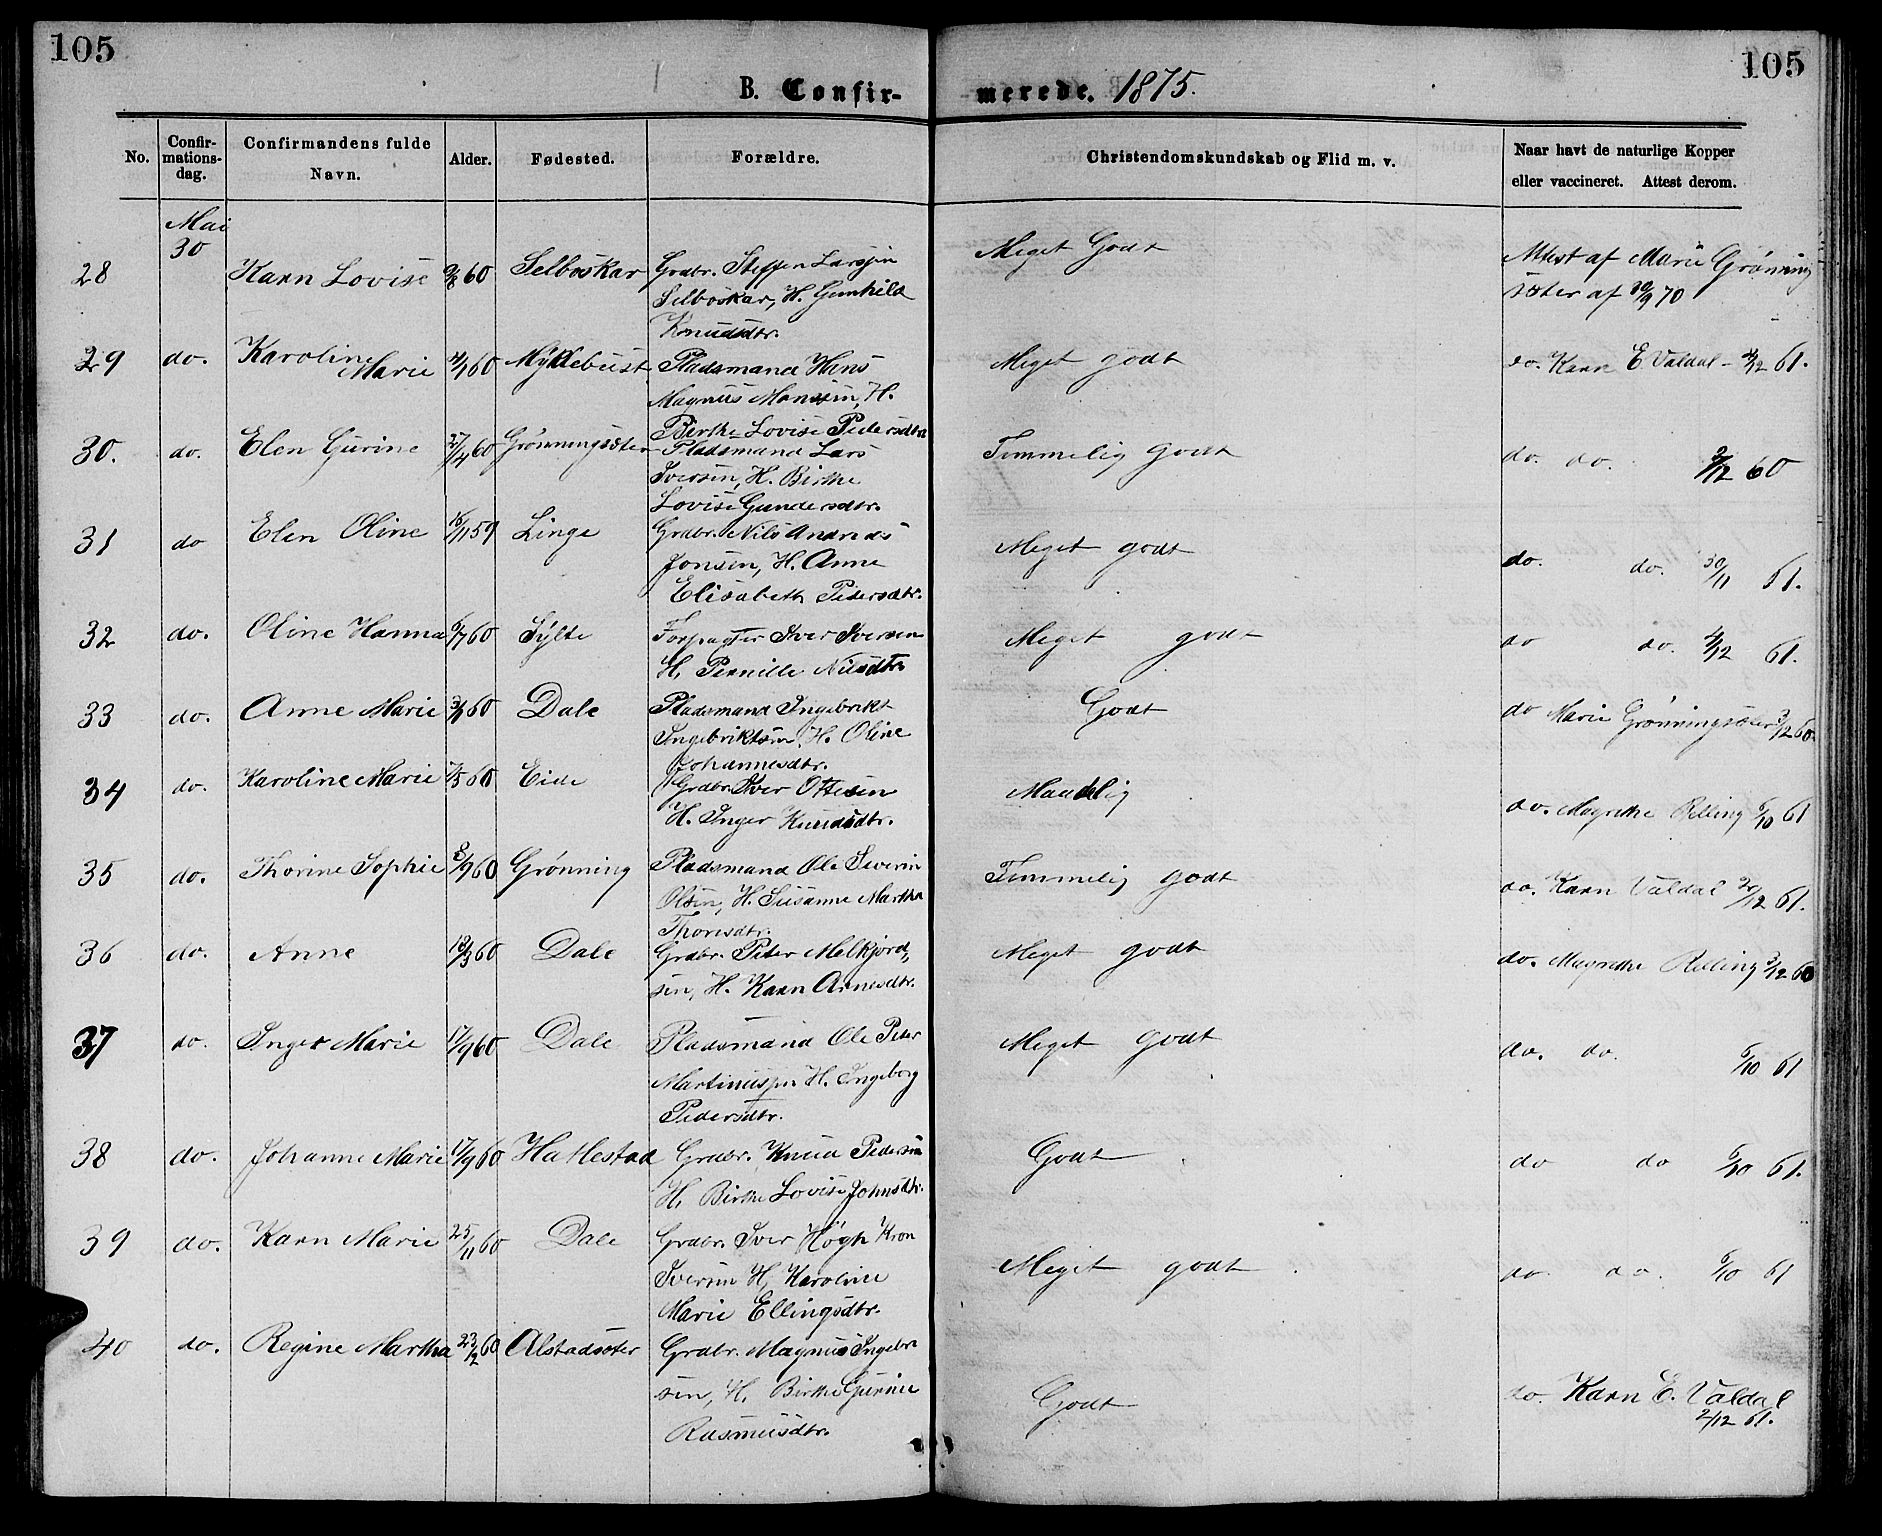 105
105
B. Confir-
merede. 1875.
No.
Confir-
mations-
dag.
Confirmandens fulde
Navn.
Alder.
Fødested.
Forældre.
Christendomskundskab og Flid m. v.
Naar havt de naturlige Kopper
eller vaccineret. Attest derom.
Mai
30
28 Karn Lovise 60 Selboskar Grdbr. Steffen Larsen Meget Godt Attest af Marie Grønning
Selboskar, H. Gunhild sæter af 30/9 70
Knudsdtr.
29 do. Karoline Marie 60 Myklebust Pladsmand Hans Meget godt do. Karn E. Valdal - 61.
Magnus Monsen, H.
Birthe Lovise Pedersdtr
30. do. Elen Gurine 27/4 60 Grønningsæter Pladsmand Lars Temmelig godt do. do. 2/12 60
Iversen, H. Birthe
Lovise Gundersdtr.
31 do Elen Oline 16/11 59 Linge Grdbr. Nils Andreas Meget godt do. do. 30/11 61.
Jonsen, H. Anne
Elisabeth Pedersdtr.
32 do. Oline Hanna 6/7 60 Sylte Forpagter Iver Iversen Meget godt do do. 4/12 61.
H. Pernille Nilsdtr.
33 do. Anne Marie 60 Dale Pladsmand Ingebrikt Godt do Marie Grønningsæter 3/12 60.
Ingebriktsen, H. Oline
Johannesdtr.
34 do. Karoline Marie 7/5 60 Eide Grdbr. Iver Ottesen Maadelig do. Magrethe Relling 6/10 61
H. Inger Knudsdtr.
35 do. Thorine Sophie 8/9 60 Grønning Pladsmand Ole Severin Temmelig godt do. Karn Valdal 61.
Olsen, H. Susanne Martha
Thoresdtr.
36 do. Anne 18/3 60 Dale Grdbr. Peter Melkjord, Meget godt do. Magrethe Relling 3/12 60
sen, H. Karn Arnesdtr.
37 do. Inger Marie 17/9 60 Dale Pladsmand Ole Peter Meget Godt do. do. 6/10 61
Martinussen H. Ingeborg
Pedersdtr.
38 do. Johanne Marie 17/9 60 Hattestad Grdbr. Knud Pedersen Godt do do 6/10 61.
H. Birthe Lovise Johnsdtr.
39 do. Karn Marie 25/11 60 Dale Grdbr. Iver Høgh Kron Meget godt do. do. 6/10 61
Iversen H. Karoline
Marie Ellingsdtr.
40 do. Regine Martha 23/2 60 Alstadsæter Grdbr. Magnus Ingebr Godt do. Karn E. Valdal
sen, H. Birthe Gurine 2/12 61.
Rasmusdtr.